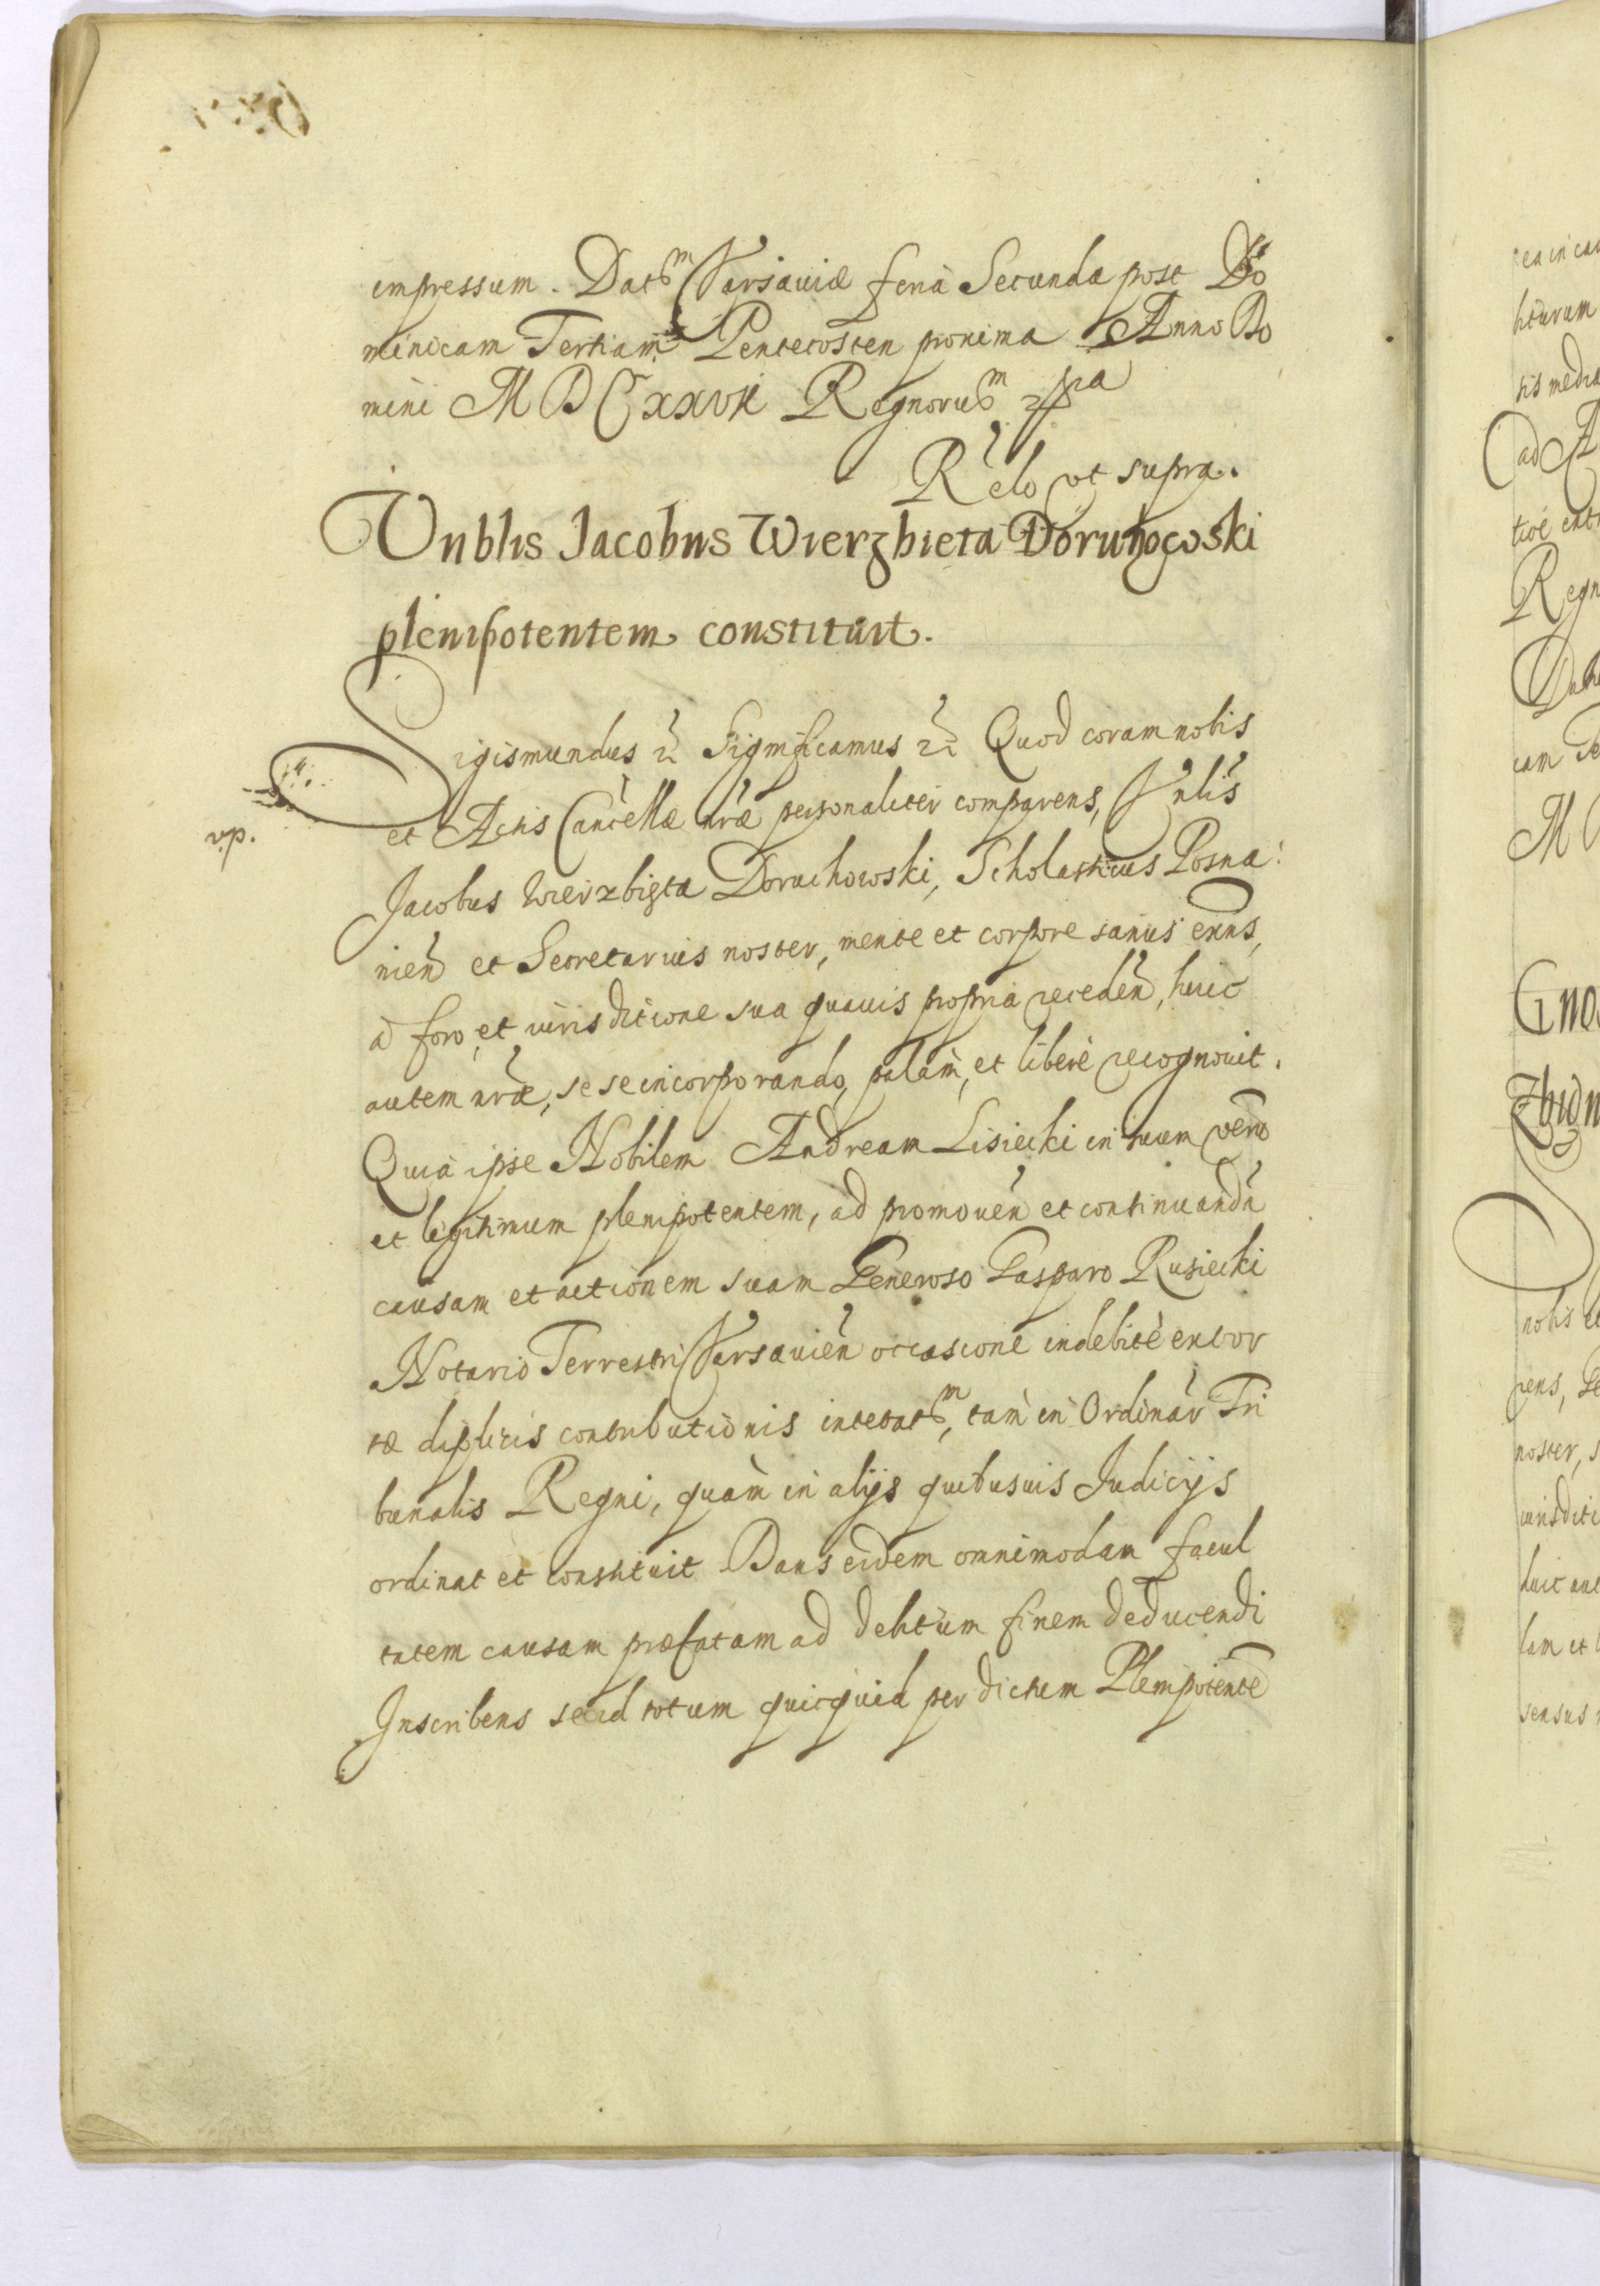 impressum. Datum Varsaviæ feria Secunda post Do
minicam Tertiam Pentecosten proxima Anno Do
mini MDCXXVII Regnorum
Relo ut supra.
Vnblis Jacobus Wierzbieta Doruchowski
plenipotentem constituit.
Sigismundus Significamus Quod coram nobis
et Actis Cancellæ nræ personaliter comparens, Vnblis
v.p.
Jacobus Wierzbięta Doruchowski, Scholasticus Posna
nien et Secretarius noster, mente et corpore sanus exns,
a foro et iurisditione sua quavis propria receden, huic
autem nræ, se se incorporando, palàm, et liberè recognovit.
Quia ipse Nobilem Andream Lisiecki in suum verũ
et legitimum plenipotentem, ad promoven et continuandã
causam et actionem suam Generoso Gasparo Rusiecki
Notario Terrestri Varsavien occasione indebitè extor
tæ duplicis contributionis intentatum, tam in Ordinar Tri
bunalis Regni, quàm in alijs quibusvis Judicijs
ordinat et constituit Dans eidem omnimodam facul
tatem causam præfatam ad debitum finem deducendi
Inscribens se id totum quicquid per dictum Plenipotentẽ